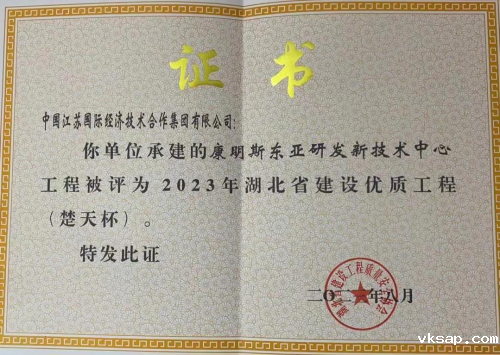 证书
中国江苏国际经济技术合作集团有限公司：
你单位承建的康明斯东亚研发新技术中心
工程被评为2023年湖北省建设优质工程
（楚天杯）。
特发此证
年八月
vksap.com